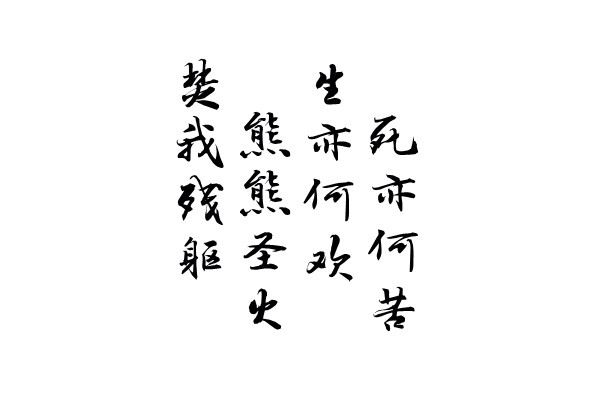 焚我残躯
熊熊圣火
生亦何欢
死亦何苦